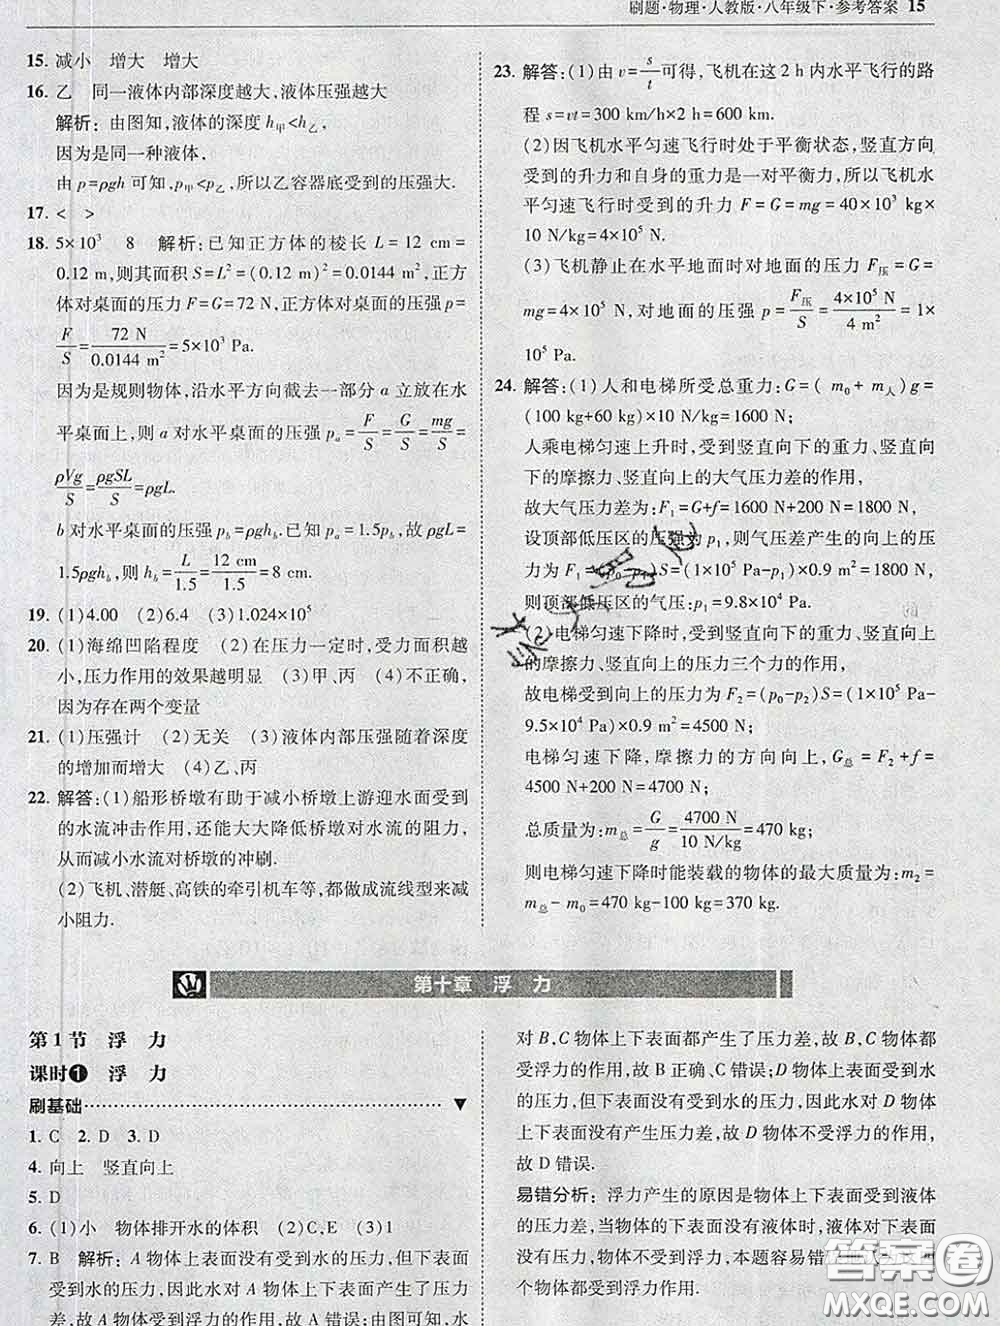 刷题·物理·人教版·八年级下·参考答案 15
15. 减小 增大 增大
16. 乙 同一液体内部深度越大,液体压强越大
解析:由图知,液体的深度 h甲<h乙,
因为是同一种液体.
由 p=ρgh 可知,p甲<p乙,所以乙容器底受到的压强大.
17. < >
18. 5×10³ 8 解析:已知正方体的棱长 L = 12 cm =
0.12 m,则其面积 S=L²=(0.12 m)²=0.0144 m²,正方
体对桌面的压力 F=G=72 N,正方体对桌面的压强 p=
F/S=72 N/0.0144 m²=5×10³ Pa.
因为是规则物体,沿水平方向截去一部分 a 立放在水
平桌面上,则 a 对水平桌面的压强 pₐ=F/S=G/S=mg/S=
ρVg/S=ρgSL/S=ρgL.
b 对水平桌面的压强 p_b=ρgh_b.已知 pₐ=1.5p_b,故 ρgL=
1.5ρgh_b,则 h_b=L/1.5=12 cm/1.5=8 cm.
19. (1)4.00 (2)6.4 (3)1.024×10⁵
20. (1)海绵凹陷程度 (2)在压力一定时,受力面积越
小,压力作用的效果越明显 (3)甲、丙 (4)不正确,
因为存在两个变量
21. (1)压强计 (2)无关 (3)液体内部压强随着深度
的增加而增大 (4)乙、丙
22. 解答:(1)船形桥墩有助于减小桥墩上游迎水面受到
的水流冲击作用,还能大大降低桥墩对水流的阻力,
从而减小水流对桥墩的冲刷.
(2)飞机、潜艇、高铁的牵引机车等,都做成流线型来减
小阻力.
23. 解答:(1)由 v=s/t可得,飞机在这 2 h 内水平飞行的路
程 s=vt=300 km/h×2 h=600 km.
(2)因飞机水平匀速飞行时处于平衡状态,竖直方向
受到的升力和自身的重力是一对平衡力,所以飞机水
平匀速飞行时受到的升力 F=G=mg=40×10³ kg×
10 N/kg=4×10⁵ N.
(3)飞机静止在水平地面时对地面的压力 F压=G=
mg=4×10⁵ N,对地面的压强 p=F压/S=4×10⁵ N/4 m²=1×
10⁵ Pa.
24. 解答:(1)人和电梯所受总重力:G=( m₀+ m人)g=
(100 kg+60 kg)×10 N/kg=1600 N;
人乘电梯匀速上升时,受到竖直向下的重力、竖直向
下的摩擦力、竖直向上的大气压力差的作用,
故大气压力差为:F₁=G+f=1600 N+200 N=1800 N,
设顶部低压区的压强为 p₁,则气压差产生的向上的压
力为 F₁=(p₀-p₁)S=(1×10⁵ Pa-p₁)×0.9 m²=1800 N,
则顶部低压区的气压:p₁=9.8×10⁴ Pa.
(2)电梯匀速下降时,受到竖直向下的重力、竖直向上
的摩擦力、竖直向上的压力三个力的作用,
故电梯受到向上的压力为 F₂=(p₀-p₂)S=(1×10⁵ Pa-
9.5×10⁴ Pa)×0.9 m²=4500 N;
电梯匀速下降,摩擦力的方向向上,G总=F₂+f=
4500 N+200 N=4700 N,
总质量为:m总=G/g=4700 N/10 N/kg=470 kg;
则电梯匀速下降时能装载的物体的最大质量为:m₂=
m总-m₀=470 kg-100 kg=370 kg.
第十章 浮 力
第 1 节 浮 力
课时❶ 浮 力
刷基础
1. C 2. D 3. D
4. 向上 竖直向上
5. D
6. (1)小 物体排开水的体积 (2)C、E (3)1
7. B 解析:A 物体上表面没有受到水的压力,但下表面
受到水的压力,因此水对 A 物体上下表面产生了压力
差,故 A 物体受浮力的作用,故 A 错误;由图可知,水
对 B、C 物体上下表面都产生了压力差,故 B、C 物体都
受浮力的作用,故 B 正确、C 错误;D 物体上表面受到水
的压力,但下表面没有受到水的压力,因此水对 D 物体
上下表面没有产生压力差,故 D 物体不受浮力的作用,
故 D 错误.
易错分析:浮力产生的原因是物体上下表面受到液体
的压力差,当物体的下表面没有液体时,液体对下表面
没有压力,故物体不受到浮力,本题容易错
个物体都受到浮力作用.
答案圈
MXQE.COM